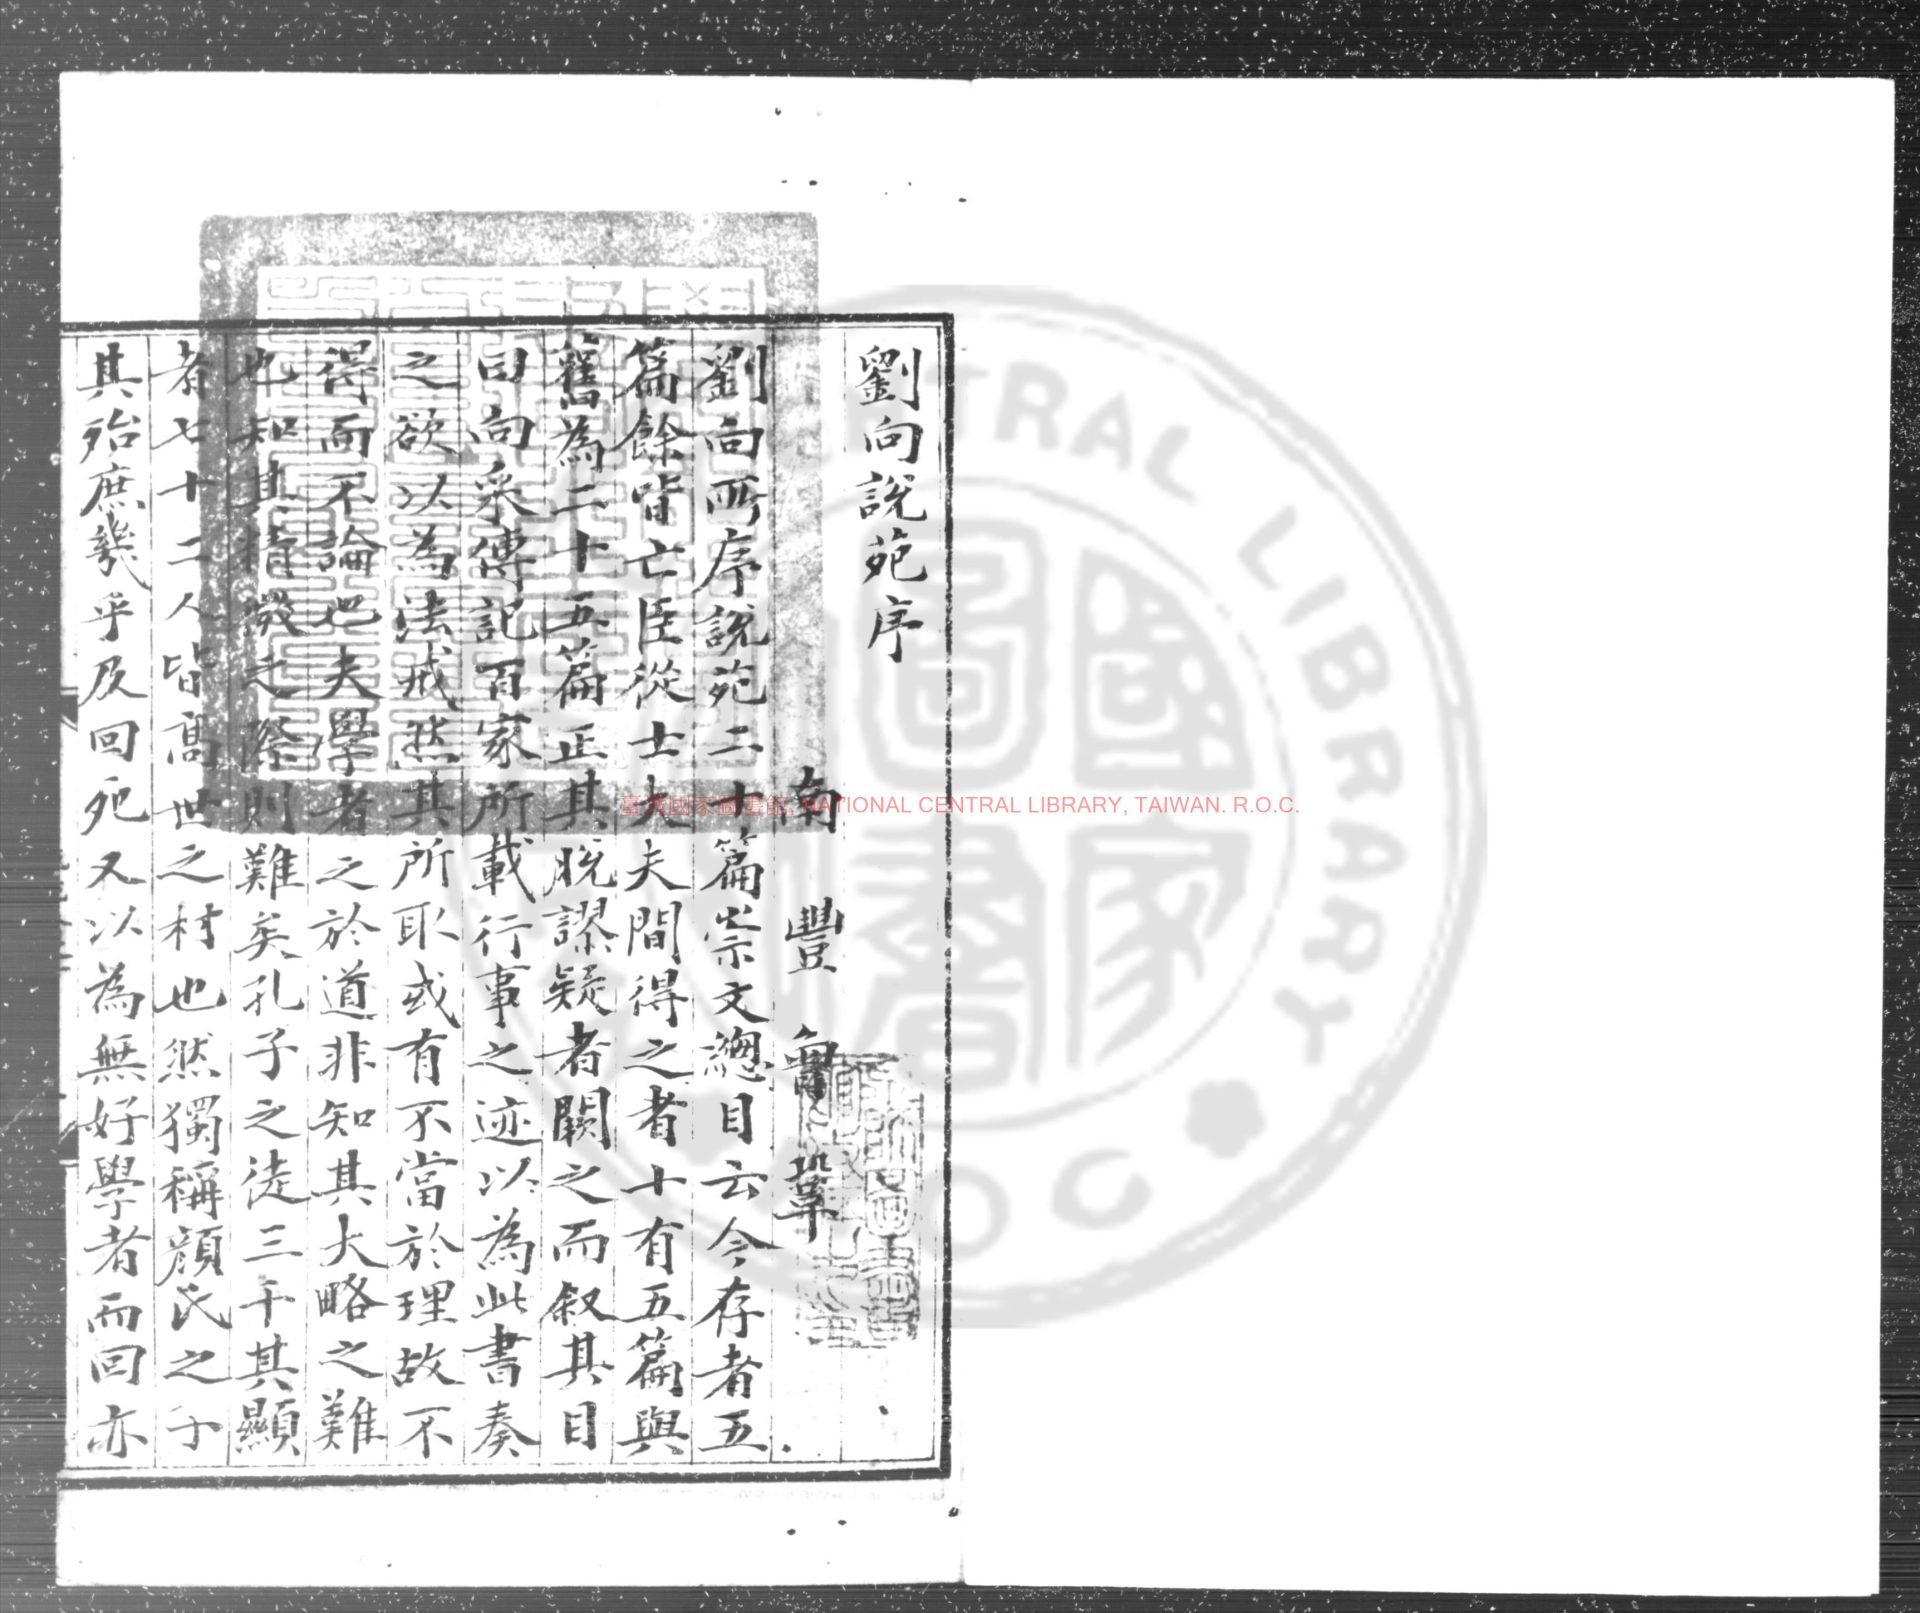 劉向說苑序
南豐曾鞏
劉向所序說苑二十篇崇文總目云今存者五
篇餘皆亡臣從士大夫間得之者十有五篇與
舊為二十五篇正其脫謬疑者闕之而叙其目
曰向采傳記百家所載行事之迹以為此書奏
之欲以為法戒然其所取或有不當於理故不
得而不論也夫學者之於道非知其大略之難
也知其精微之際則難矣孔子之徒三千其顯
者七十二人皆高世之材也然獨稱顏氏之子
其殆庶幾乎及回死又以為無好學者而回亦
臺灣國家圖書館, NATIONAL CENTRAL LIBRARY, TAIWAN. R.O.C.
CENTRAL LIBRARY
國家圖書館